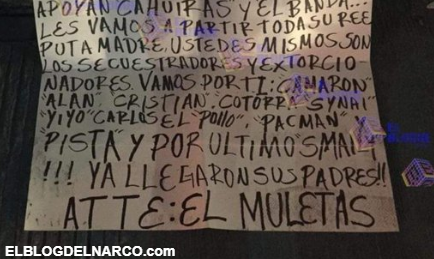 APOYAN CAHUIRAS" Y EL BANDA...
LES VAMOS A PARTIR TODA SU REE
PUTA MADRE. USTEDES MISMOS SON
LOS SECUESTRADORES Y EXTORCIO
NADORES. VAMOS POR TI: CAMARON"
ALAN", CRISTIAN", COTORRA" SYNAI"
"YIYO" CARLOS EL "POLLO", "PACMAN" Y
PISTA" Y POR ULTIMO
!!! YA LLEGARON SUS PADRES!!
ATTE: EL MULETAS
ELBLOGDELNARCO.COM